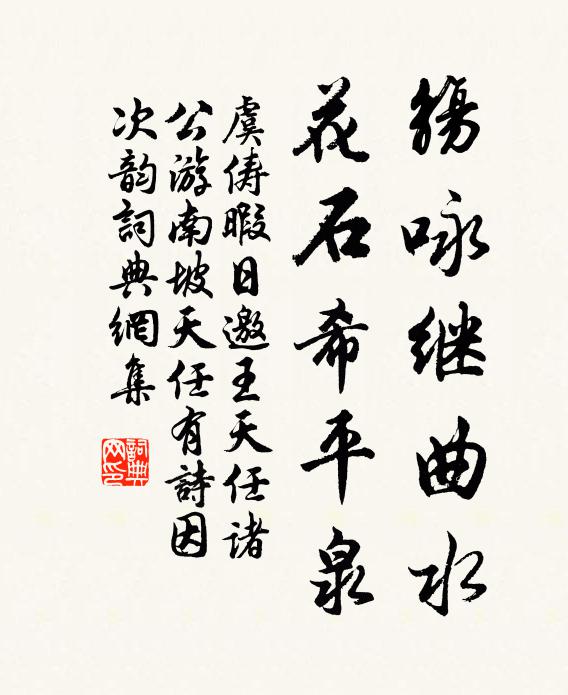 觴咏继曲水
花石希平泉
虞俦暇日邀王天任诸
公游南坡天任有詩因
次韵詞典網集
詞典
网印